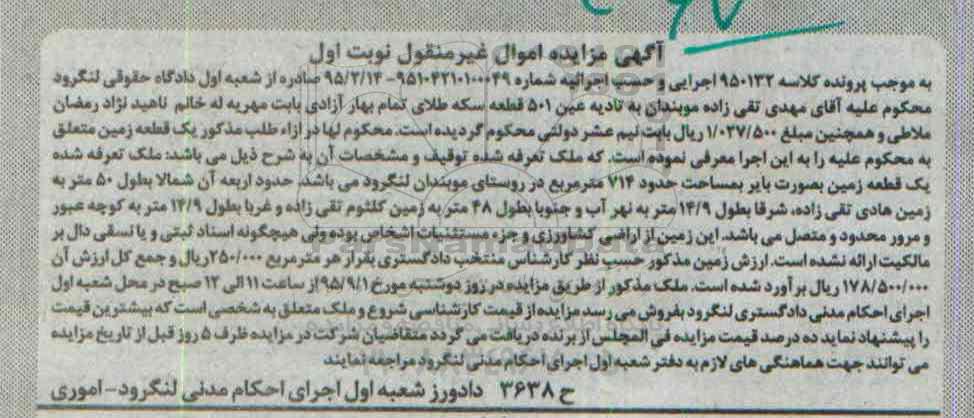 آگهی مزایده اموال غیرمنقول نوبت اول
به موجب پرونده کلاسه ۹۵۰۱۳۲ اجرایی و حسب اجرائیه شماره ۹۵۱۰۴۲۱۰۱۰۰۰۴۹ - ۹۵/۲/۱۴ صادره از شعبه اول دادگاه حقوقی لنگرود
محکوم علیه آقای مهدی تقی زاده موبندان به تادیه عین ۵۰۱ قطعه سکه طلای تمام بهار آزادی بابت مهریه له خانم ناهید نژاد رمضان
ملاطی و همچنین مبلغ ۱/۰۳۷/۵۰۰ ریال بابت نیم عشر دولتی محکوم گردیده است. محکوم لها در ازاء طلب مذکور یک قطعه زمین متعلق
به محکوم علیه را به این اجرا معرفی نموده است. که ملک تعرفه شده توقیف و مشخصات آن به شرح ذیل می باشد: ملک تعرفه شده
یک قطعه زمین بصورت بایر بمساحت حدود ۷۱۴ مترمربع در روستای موبندان لنگرود می باشد. حدود اربعه آن شمالا بطول ۵۰ متر به
زمین هادی تقی زاده، شرقا بطول ۱۴/۹ متر به نهر آب و جنوبا بطول ۴۸ متر به زمین کلثوم تقی زاده و غربا بطول ۱۴/۹ متر به کوچه عبور
و مرور محدود و متصل می باشد. این زمین از اراضی کشاورزی و جزء مستثنیات اشخاص بوده ولی هیچگونه اسناد ثبتی و یا نسقی دال بر
مالکیت ارائه نشده است. ارزش زمین مذکور حسب نظر کارشناس منتخب دادگستری بقرار هر متر مربع ۲۵۰/۰۰۰ ریال و جمع کل ارزش آن
۱۷۸/۵۰۰/۰۰۰ ریال برآورد شده است. ملک مذکور از طریق مزایده در روز دوشنبه مورخ ۹۵/۹/۱ از ساعت ۱۱ الی ۱۲ صبح در محل شعبه اول
اجرای احکام مدنی دادگستری لنگرود بفروش می رسد مزایده از قیمت کارشناسی شروع و ملک متعلق به شخصی است که بیشترین قیمت
را پیشنهاد نماید ده درصد قیمت مزایده فی المجلس از برنده دریافت می گردد متقاضیان شرکت در مزایده ظرف ۵ روز قبل از تاریخ مزایده
می توانند جهت هماهنگی های لازم به دفتر شعبه اول اجرای احکام مدنی لنگرود مراجعه نمایند
ح ۳۶۳۸ دادورز شعبه اول اجرای احکام مدنی لنگرود - اموری